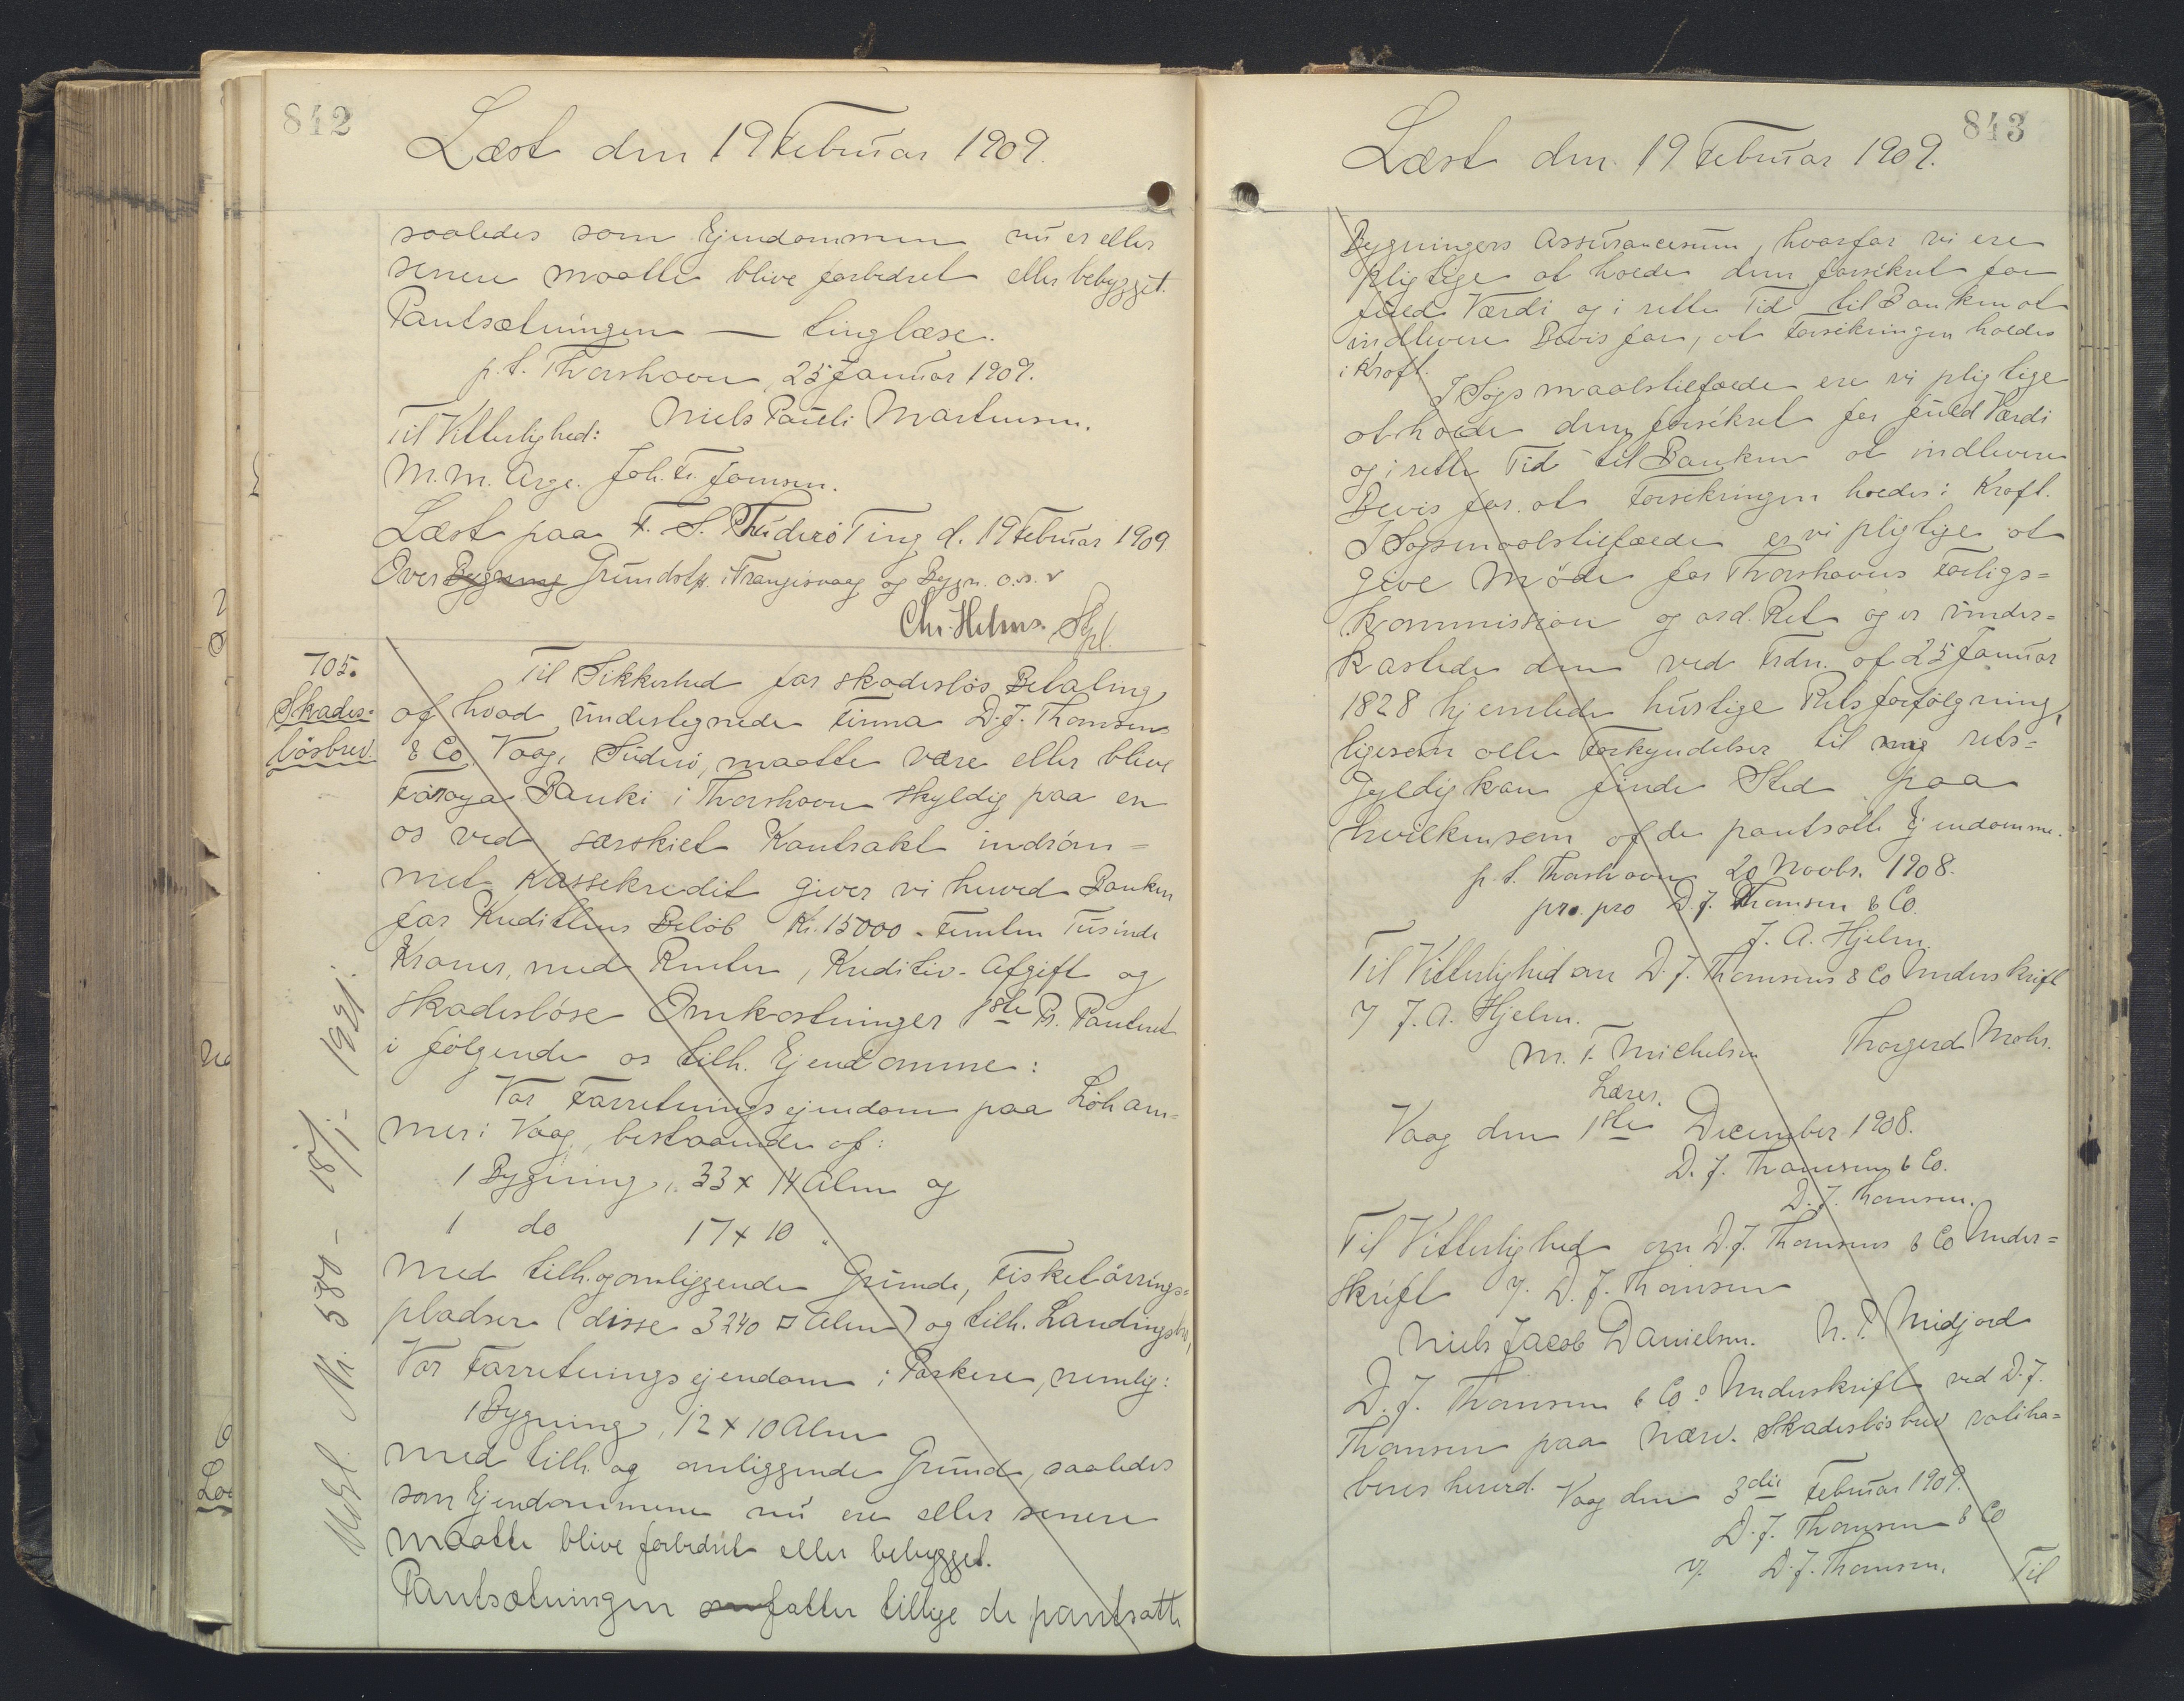 842
Læst den 19 Februar 1909.
saaledes som Ejendommen nu er eller
senere maatte blive forbedret eller bebygget.
Pantsætningen — tinglæse.
p. t. Thorshavn, 25 Januar 1909.
Niels Pauli Martensen.
Til Vitterlighed:
M. M. Arge. Joh. Fr. Joensen.
Læst paa F. S. Suderö Ting d. 19 Februar 1909
Over Bygning Grundst. i Trangisvaag og Bygn. o. s. v
Chr. Helms. Spl.
705.
Skades-
lösbrev.
Til Sikkerhed for skadeslös Betaling
af hvad undertegnede Firma D. J. Thomsen
& Co. Vaag, Suderö, maatte være eller blive
Föroya Banki i Thorshavn skyldig paa en
os ved særskilt Kontrakt indröm=
met Kassekredit giver vi herved Banken
for Kreditens Belöb Kr. 15000 - Femten Tusinde
Kroner, med Renter, Kreditiv-Afgift og
skadeslöse Omkostninger 1ste Pr. Panteret
i fölgende os tilh. Ejendomme:
Vor Forretningsejendom paa Löham=
mer i Vaag, bestaaende af:
1 Bygning, 33 x 14 Alen og
1 do 17 x 10 "
med tilh. og omliggende Grunde, Fisketörrings=
pladser (disse 3240 □ Alen) og tilh. Landingsbro,
Vor Forretningsejendom i Porkere, nemlig:
1 Bygning, 12 x 10 Alen
med tilh. og omliggende Grund, saaledes
som Ejendommene nu ere eller senere
maatte blive forbedret eller bebygget.
Pantsætningen omfatter tillige de pantsatte
Udsl. Nr. 580 - 18/1 - 1921.
843
Læst den 19 Februar 1909.
Bygningers Assurancesum, hvorfor vi ere
pligtige at holde dem forsikret for
fuld Værdi og i rette Tid til Banken at
indlevere Bevis for, at Forsikringen holdes
i Kraft.
I Sögsmaalstilfælde ere vi pligtige
at holde dem forsikret for fuld Værdi
og i rette Tid til Banken at indlevere
Bevis for at Forsikringen holdes i Kraft.
I Sögsmaalstilfælde er vi pligtige at
give Möde for Thorshavns Forligs=
kommission og ord. Ret og er under=
kastede den ved Frdn. af 25 Januar
1828 hjemlede hurtige Retsforfölgning,
ligesom alle Forkyndelser til mig rets=
gyldig kan finde Sted paa
hvilkensom af de pantsatte Ejendomme.
p. t. Thorshavn 20 Novbr. 1908.
pro. pro D. J. Thomsen & Co.
J. A. Hjelm.
Til Vitterlighed om D. J. Thomsens & Co Underskrift
v/ J. A. Hjelm.
M. F. Michelsen Thorgerd Mohr.
Lærer.
Vaag den 1ste December 1908.
D. J. Thomsen & Co.
D. J. Thomsen.
Til Vitterlighed om D. J. Thomsens & Co Under=
skrift v/ D. J. Thomsen
Niels Jacob Danielsen. N. P. Midjord
D. J. Thomsen & Co.s Underskrift ved D. J.
Thomsen paa nærv. Skadeslösbrev ratiha=
beres herved. Vaag den 3die Februar 1909.
D. J. Thomsen & Co
v/ D. J. Thomsen.
Til